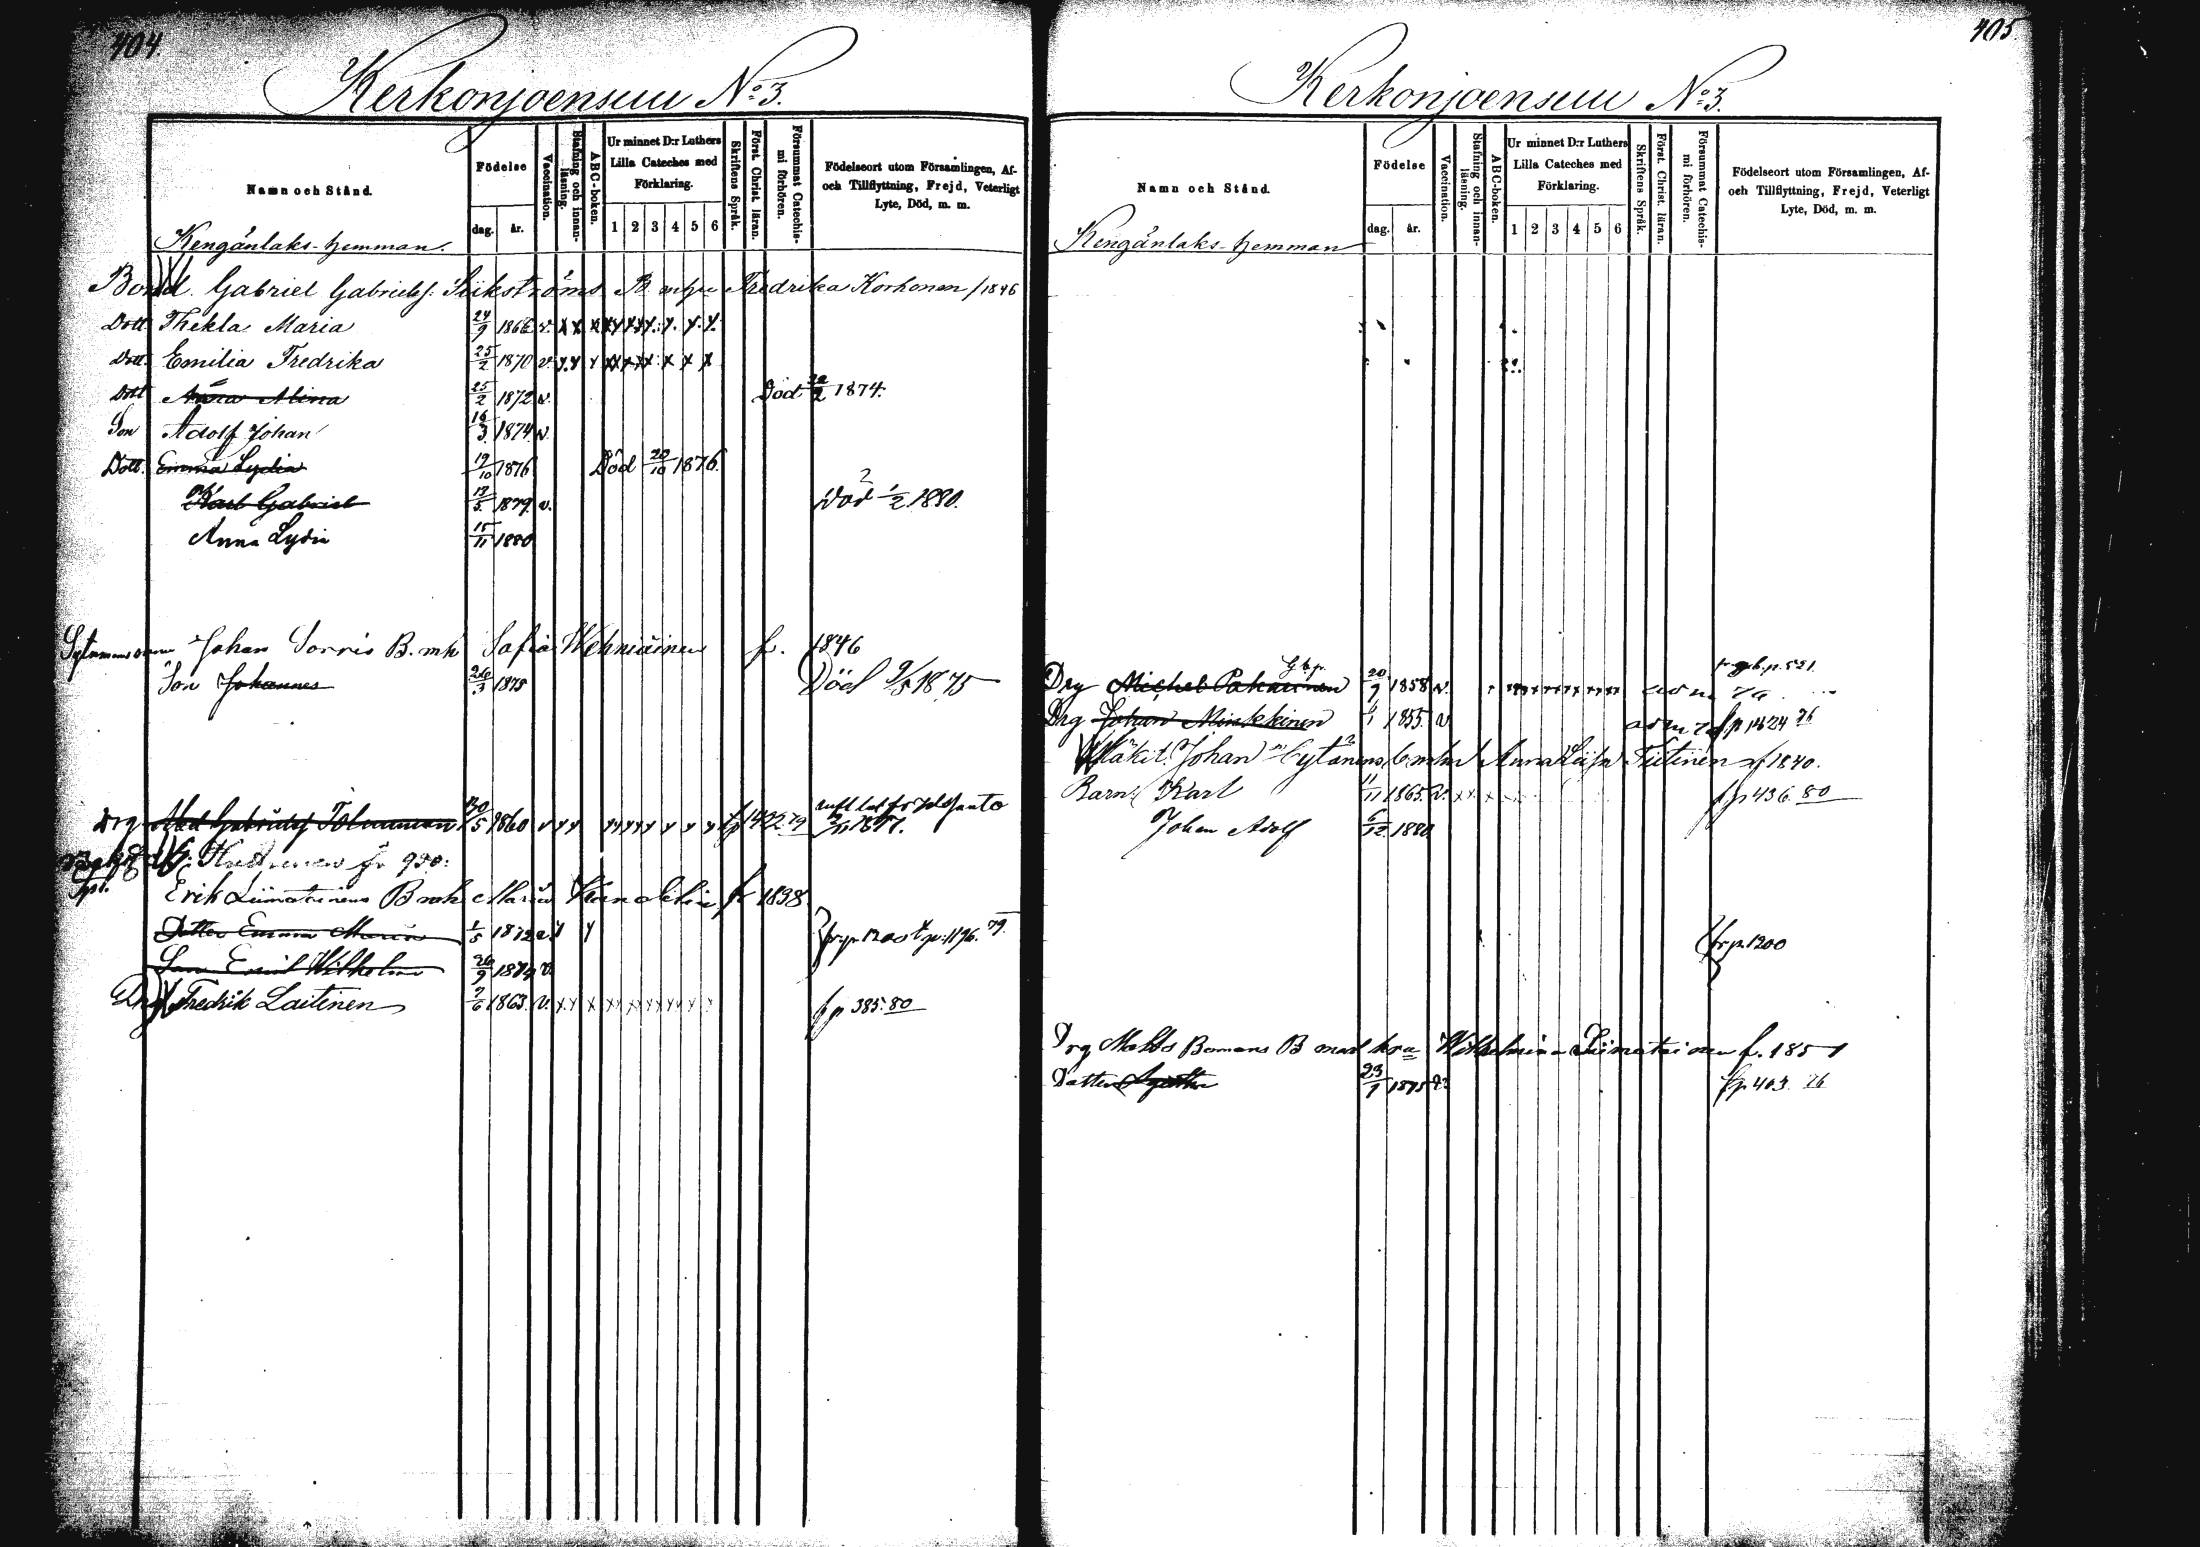 404.
Kerkonjoensuu No 3.
Namn och Stånd.
Födelse
dag.
år.
Vaccination.
Stafning och innan-
läsning.
ABC-boken.
Ur minnet D:r Luthers
Lilla Cateches med
Förklaring.
1 2 3 4 5 6
Skriftens Språk.
Först. Christ. läran.
Försummat Catechis-
mi förhören.
Födelseort utom Församlingen, Af-
och Tillflyttning, Frejd, Veterligt
Lyte, Död, m. m.
Kengänlaks-hemman.
Bond. Gabriel Gabrielsf: Siikströms B m hu Fredrika Korhonen /1846
Dott Thekla Maria 24/9 1866 v.
Dott. Emilia Fredrika 25/2 1870 v.
Dott Anna Alina 25/2 1872 v. Död 22/2 1874.
Son Adolf Johan 16/3 1874 v.
Dott. Emma Lydia 19/10 1876 Död 20/10 1876.
Karl Gabriel 13/5 1879. v. Död 1/2 1880.
Anna Lydia 15/11 1880
Johan Sorris B. mh Sofia Wehniäinen f. 1846
Son Johannes 26/3 1875 Död 9/5 1875
Drg Abel Gabrielsf Tolvanen 1860 v
fr 950:
Erik Liimatainens B mh Maria f 1838.
Dotter Emma Maria 1/5 1872 v. fr p 1200 t p. 1196. 79.
Son Emil Wilhelm 26/9 1874 v.
Drg Fredrik Laitinen 7/6 1863. v. f p 385. 80
405
Kerkonjoensuu No 3.
Namn och Stånd.
Födelse
dag.
år.
Vaccination.
Stafning och innan-
läsning.
ABC-boken.
Ur minnet D:r Luthers
Lilla Cateches med
Förklaring.
1 2 3 4 5 6
Skriftens Språk.
Först. Christ. läran.
Försummat Catechis-
mi förhören.
Födelseort utom Församlingen, Af-
och Tillflyttning, Frejd, Veterligt
Lyte, Död, m. m.
Kengänlaks-hemman
Drg Michel Pakarinen 20/9 1858 v.
Drg Johan Minkkinen 6/1 1855. v
Johan Anna Liisa Tiitinen f 1840.
Barn: Karl 11/11 1865. v. f p 436. 80
Johan Adolf 6/12 1880
fr p. 1200
Drg Mattes Bomans B med hru Wilhelmina Liimatainen f. 1851
Dotter Agatha 23/1 1875 v. f p 403. 76